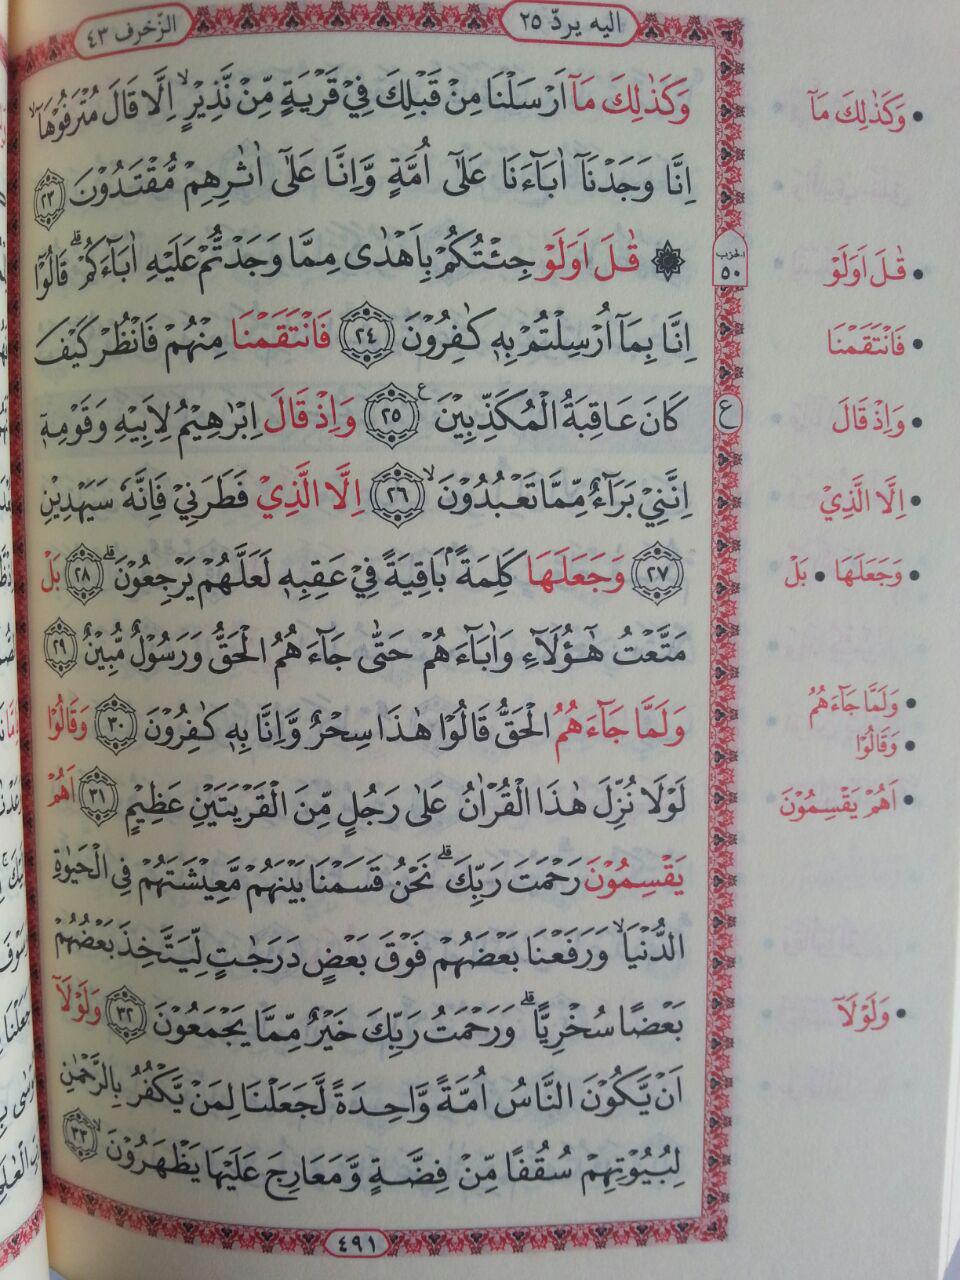 الزخرف ٤٣
اليه يردّ ٢٥
وَكَذٰلِكَ مَآ اَرْسَلْنَا مِنْ قَبْلِكَ فِيْ قَرْيَةٍ مِّنْ نَّذِيْرٍۙ اِلَّا قَالَ مُتْرَفُوْهَآۙ
اِنَّا وَجَدْنَآ اٰبَاۤءَنَا عَلٰٓى اُمَّةٍ وَّاِنَّا عَلٰٓى اٰثٰرِهِمْ مُّقْتَدُوْنَ ٢٣
۞ قٰلَ اَوَلَوْ جِئْتُكُمْ بِاَهْدٰى مِمَّا وَجَدْتُّمْ عَلَيْهِ اٰبَاۤءَكُمْۗ قَالُوْٓا
اِنَّا بِمَآ اُرْسِلْتُمْ بِهٖ كٰفِرُوْنَ ٢٤ فَانْتَقَمْنَا مِنْهُمْ فَانْظُرْ كَيْفَ
كَانَ عَاقِبَةُ الْمُكَذِّبِيْنَ ࣖ ٢٥ وَاِذْ قَالَ اِبْرٰهِيْمُ لِاَبِيْهِ وَقَوْمِهٖٓ
اِنَّنِيْ بَرَاۤءٌ مِّمَّا تَعْبُدُوْنَۙ ٢٦ اِلَّا الَّذِيْ فَطَرَنِيْ فَاِنَّهٗ سَيَهْدِيْنِ
٢٧ وَجَعَلَهَا كَلِمَةً ۢ بَاقِيَةً فِيْ عَقِبِهٖ لَعَلَّهُمْ يَرْجِعُوْنَۗ ٢٨ بَلْ
مَتَّعْتُ هٰٓؤُلَاۤءِ وَاٰبَاۤءَهُمْ حَتّٰى جَاۤءَهُمُ الْحَقُّ وَرَسُوْلٌ مُّبِيْنٌ ٢٩
وَلَمَّا جَاۤءَهُمُ الْحَقُّ قَالُوْا هٰذَا سِحْرٌ وَّاِنَّا بِهٖ كٰفِرُوْنَ ٣٠ وَقَالُوْا
لَوْلَا نُزِّلَ هٰذَا الْقُرْاٰنُ عَلٰى رَجُلٍ مِّنَ الْقَرْيَتَيْنِ عَظِيْمٍ ٣١ اَهُمْ
يَقْسِمُوْنَ رَحْمَتَ رَبِّكَۗ نَحْنُ قَسَمْنَا بَيْنَهُمْ مَّعِيْشَتَهُمْ فِى الْحَيٰوةِ
الدُّنْيَاۙ وَرَفَعْنَا بَعْضَهُمْ فَوْقَ بَعْضٍ دَرَجٰتٍ لِّيَتَّخِذَ بَعْضُهُمْ
بَعْضًا سُخْرِيًّاۗ وَرَحْمَتُ رَبِّكَ خَيْرٌ مِّمَّا يَجْمَعُوْنَ ٣٢ وَلَوْلَآ
اَنْ يَّكُوْنَ النَّاسُ اُمَّةً وَّاحِدَةً لَّجَعَلْنَا لِمَنْ يَّكْفُرُ بِالرَّحْمٰنِ
لِبُيُوْتِهِمْ سُقُفًا مِّنْ فِضَّةٍ وَّمَعَارِجَ عَلَيْهَا يَظْهَرُوْنَۙ ٣٣
الحزب
٥٠
ع
• وَكَذٰلِكَ مَآ
• قٰلَ اَوَلَوْ
• فَانْتَقَمْنَا
• وَاِذْ قَالَ
• اِلَّا الَّذِيْ
• وَجَعَلَهَا • بَلْ
• وَلَمَّا جَاۤءَهُمُ
• وَقَالُوْا
• اَهُمْ يَقْسِمُوْنَ
• وَلَوْلَآ
٤٩١